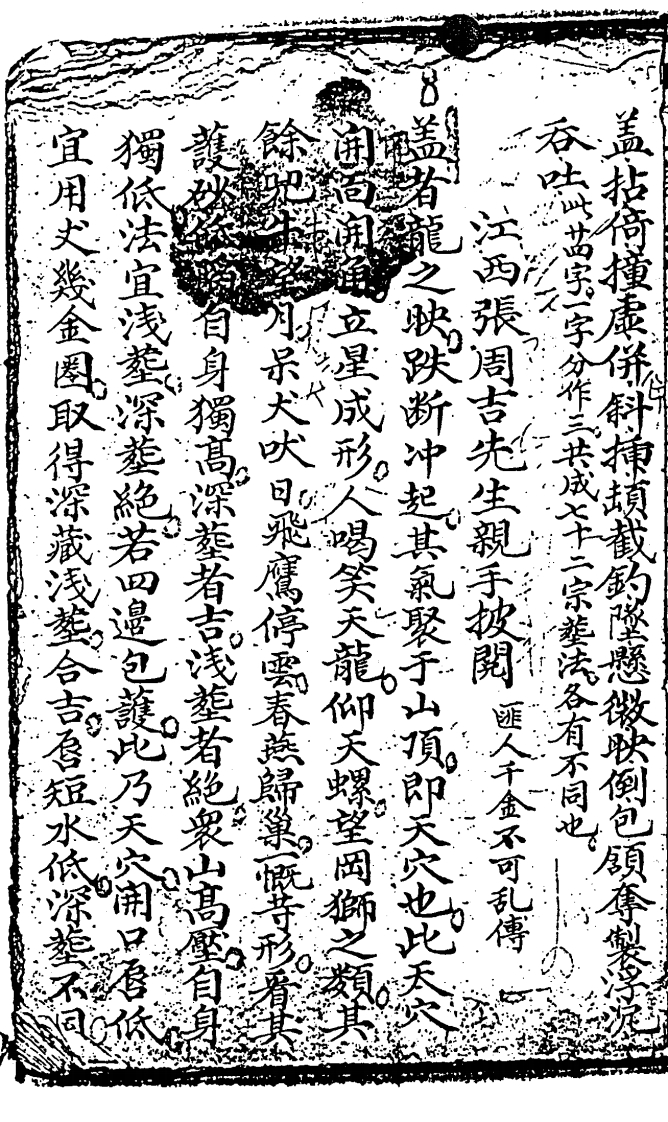 盖拈倚撞虚併斜揷頡截釣墜懸微映倒包額奪製浮沉
吞吐此廿四字一字分作三共成七十二宗塟法各有不同也
江西張周吉先生親手披閱 匪人千金不可乱傳
盖者龍之映跌断冲起其氣聚于山頂即天穴也此天穴
開面開角立星成形人喝笑天龍仰天螺望岡獅之類其
餘兕牛望月呆犬吠日飛鷹停雲春燕歸巢一慨芽形看其
護砂 自身獨高深塟者吉浅塟者絶衆山高壓自身
獨低法宜浅塟深塟絶若四邊包護此乃天穴開口唇低
宜用犬幾金圈取得深藏浅塟合吉唇短水低深塟不同